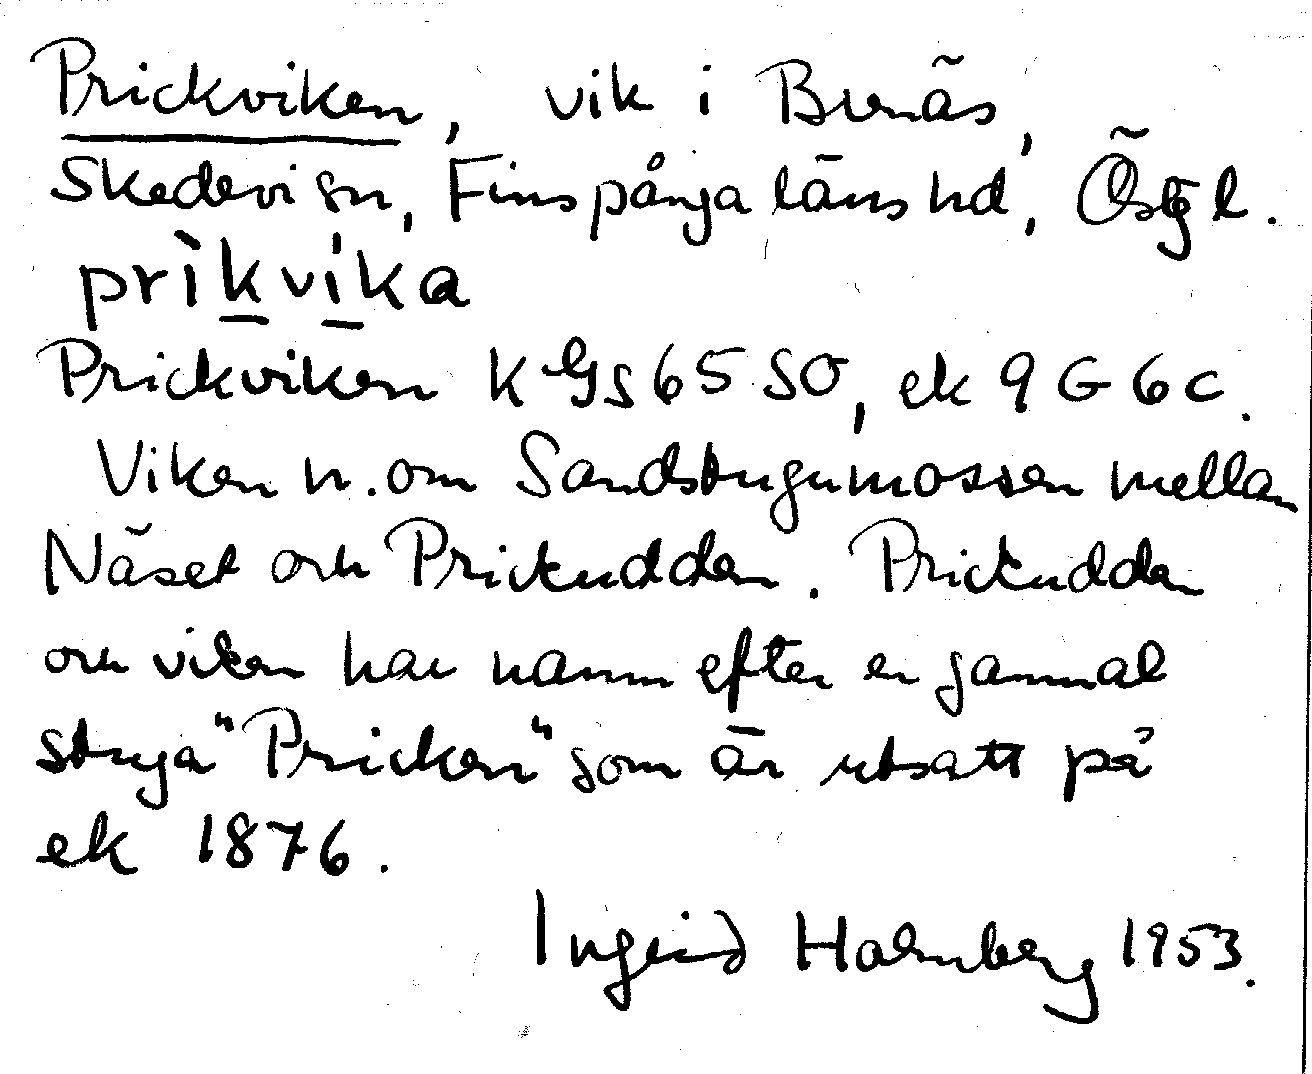 Prickviken, vik i Brenäs,
Skedevi sn, Finspånga läns hd, Östgl.
prìkvika
Prickviken K GS 65 SO, ek 9 G 6 c.
Viken n. om Sandstugumossen mellan
Näset och Prickudden. Prickudden
och viken har namn efter en gammal
stuga "Pricken" som är utsatt på
ek 1876.
Ingrid Holmberg 1953.